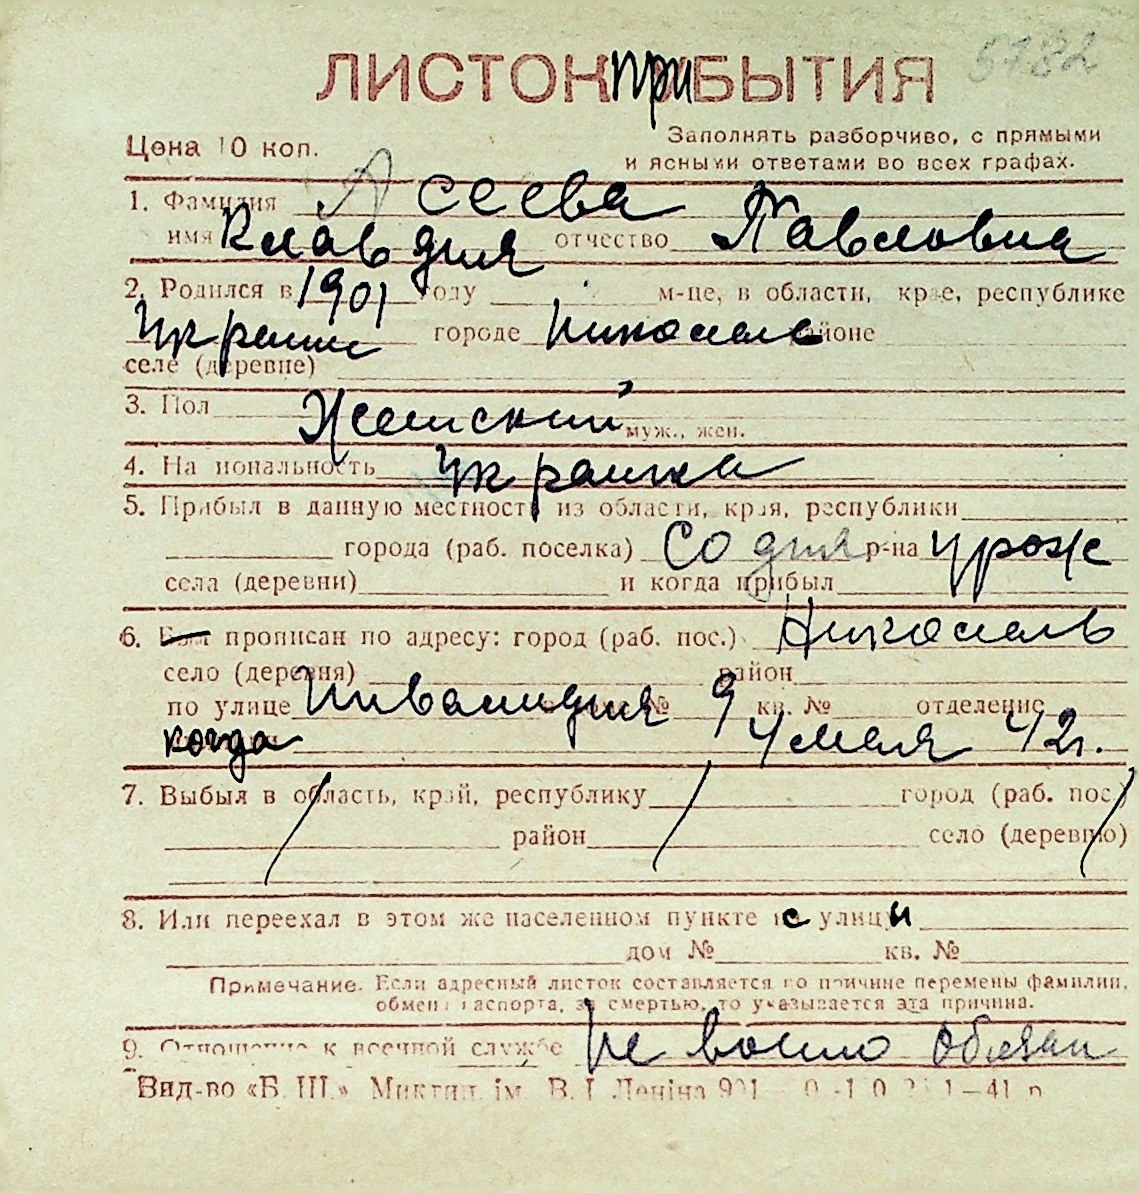 5782
ЛИСТОК при БЫТИЯ
Цена 10 коп.
Заполнять разборчиво, с прямыми
и ясными ответами во всех графах.
1. Фамилия Асеева
имя Клавдия отчество Павловна
2. Родился в 1901 году м-це, в области, крае, республике
городе районе
селе (деревне)
3. Пол Женский муж., жен.
4. Национальность Украинка
5. Прибыл в данную местность из области, края, республики
города (раб. поселка) Со дня р-на урож
села (деревни) и когда прибыл
6. прописан по адресу: город (раб. пос.)
село (деревня) район
по улице № 9 кв. № отделение
когда 4 мая 42 г.
7. Выбыл в область, край, республику город (раб. пос.)
район село (деревню)
8. Или переехал в этом же населенном пункте с улицы
дом № кв. №
Примечание. Если адресный листок составляется по причине перемены фамилии,
обмена паспорта, за смертью, то указывается эта причина.
9. Отношение к военной службе Не воено обязан
Вид-во «Б. Ш.» ім. В. І. Леніна